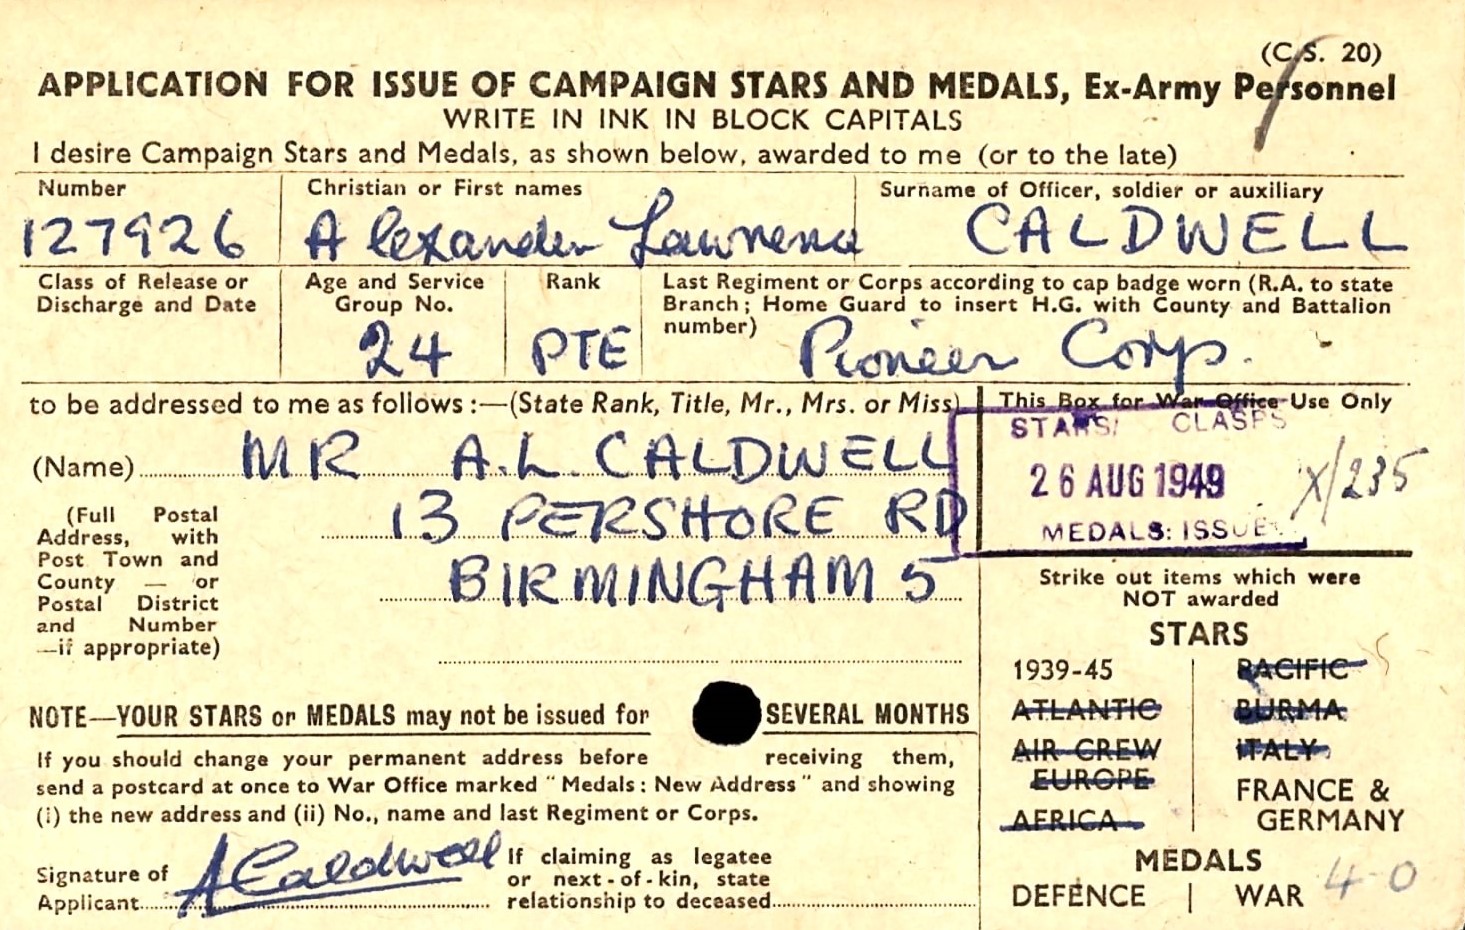 (C.S. 20)
APPLICATION FOR ISSUE OF CAMPAIGN STARS AND MEDALS, Ex-Army Personnel
WRITE IN INK IN BLOCK CAPITALS
I desire Campaign Stars and Medals, as shown below, awarded to me (or to the late)
Number Christian or First names Surname of Officer, soldier or auxiliary
127926 Alexander Lawrence CALDWELL
Class of Release or Discharge and Date
Age and Service Group No.
24
Rank
PTE
Last Regiment or Corps according to cap badge worn (R.A. to state
Branch; Home Guard to insert H.G. with County and Battalion
number) Pioneer Corps.
to be addressed to me as follows:—(State Rank, Title, Mr., Mrs. or Miss)
(Name) MR A.L. CALDWELL
(Full Postal
Address, with
Post Town and
County — or
Postal District
and Number
—if appropriate)
13 PERSHORE RD
BIRMINGHAM 5
This Box for War Office Use Only
STARS/ CLASPS
26 AUG 1949
MEDALS: ISSUE
X/235
Strike out items which were
NOT awarded
STARS
1939-45
ATLANTIC
AIR CREW
EUROPE
AFRICA
PACIFIC
BURMA
ITALY
FRANCE &
GERMANY
MEDALS
DEFENCE | WAR 40
NOTE—YOUR STARS or MEDALS may not be issued for SEVERAL MONTHS
If you should change your permanent address before receiving them,
send a postcard at once to War Office marked "Medals: New Address" and showing
(i) the new address and (ii) No., name and last Regiment or Corps.
Signature of
Applicant
A Caldwell
If claiming as legatee
or next-of-kin, state
relationship to deceased